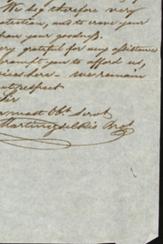 We beg therefore very
tection, and to crave your
than your goodness.
very grateful for any assistance
prompt you to afford us,
vices here - we remain
respect
Sir
most Obt. Servt
Martin